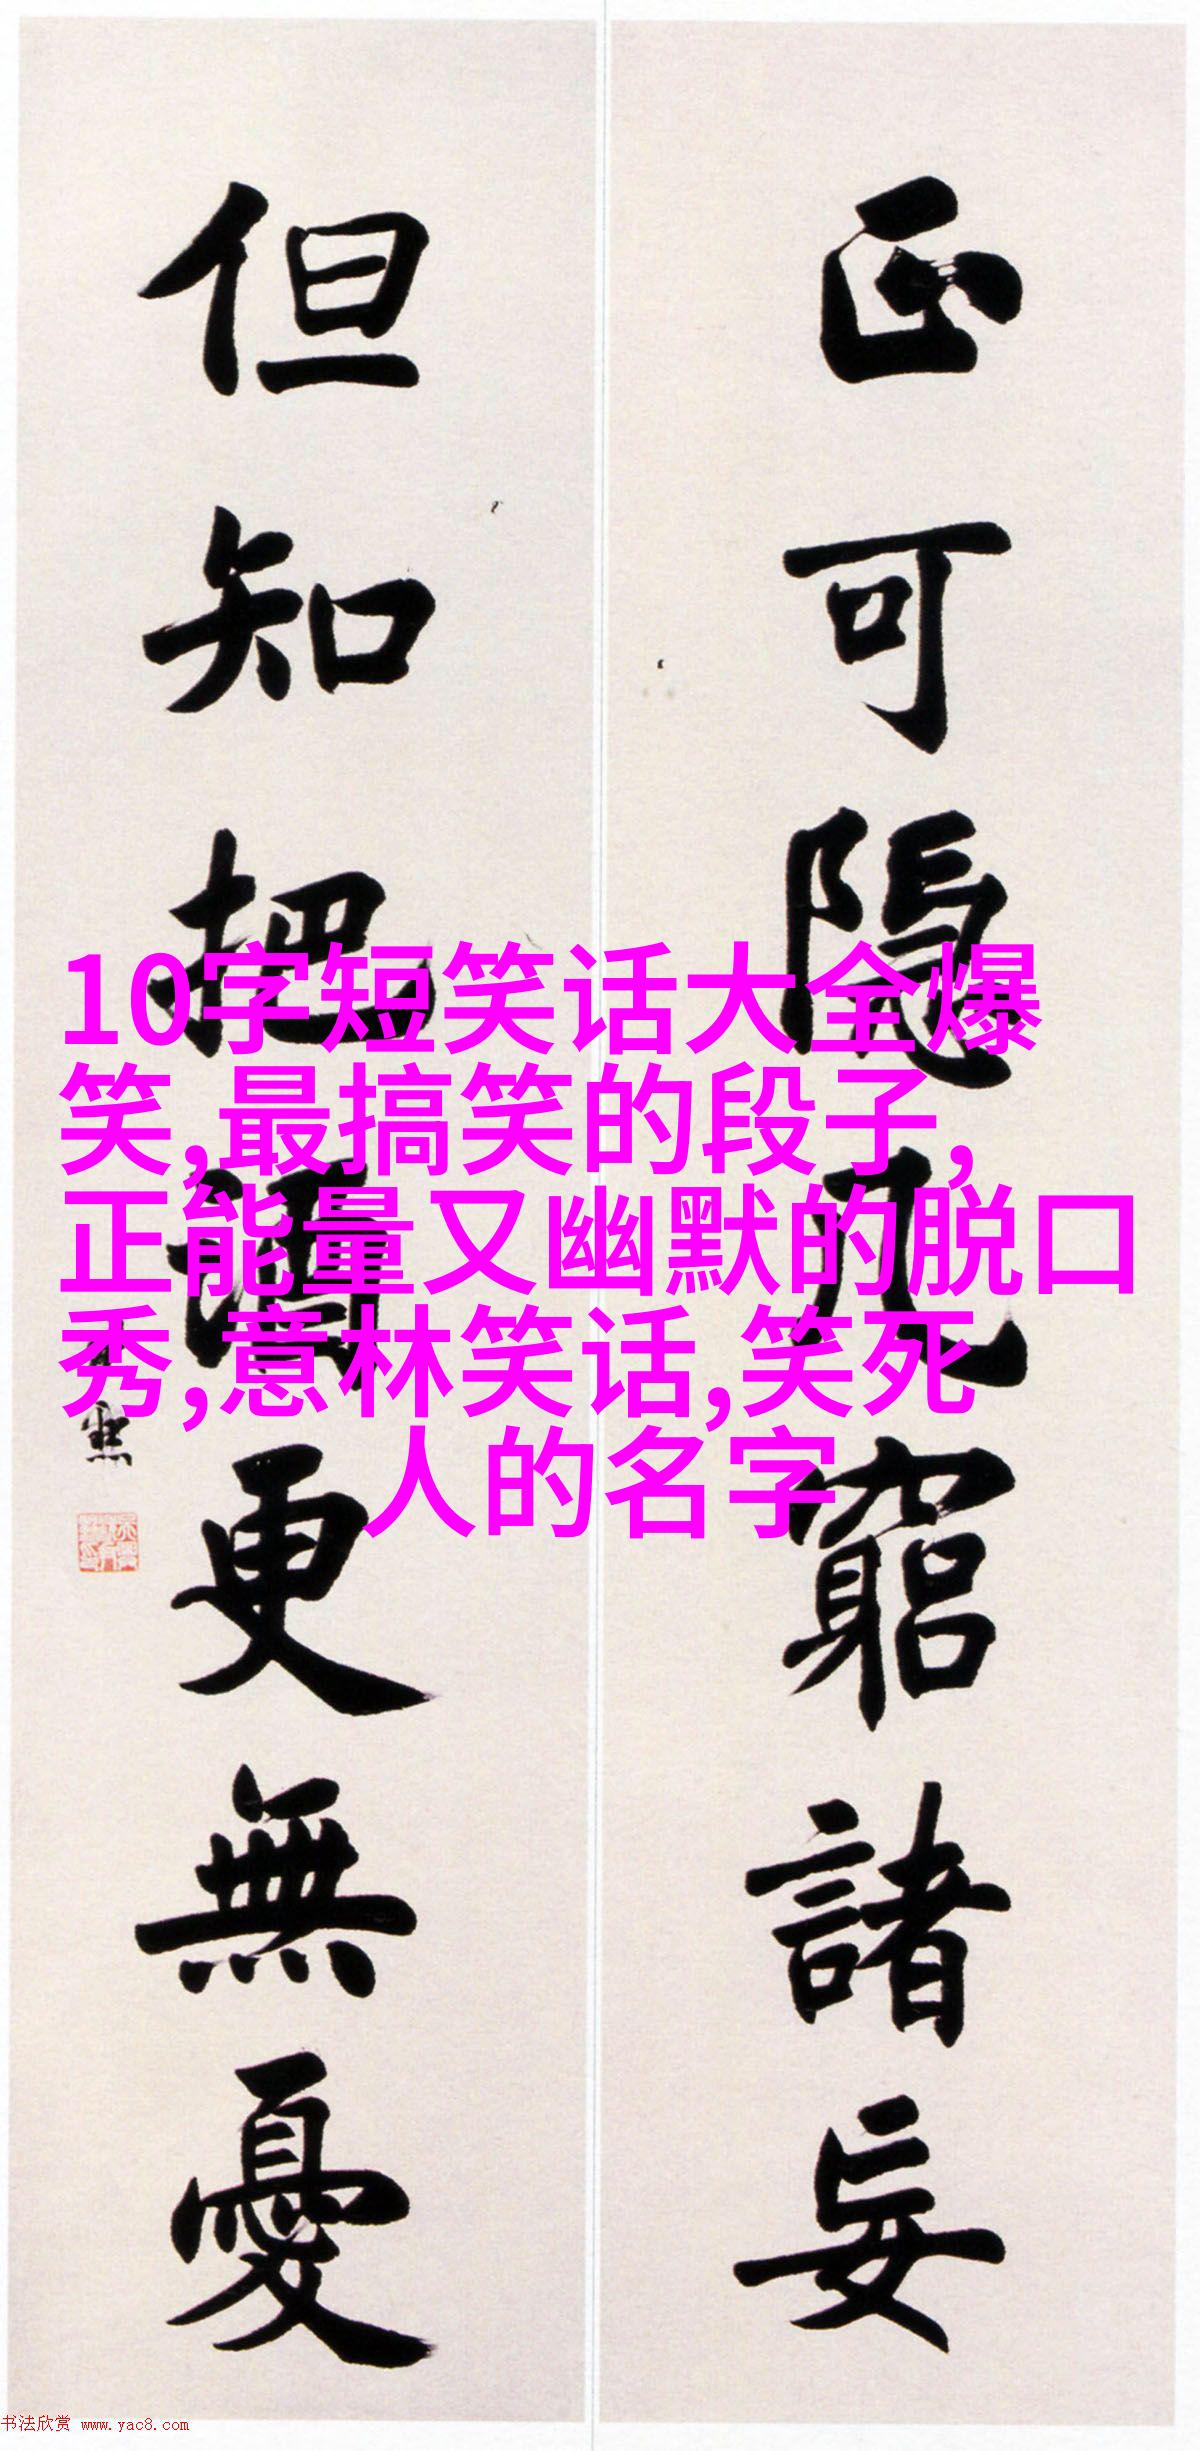 正可隱几窮諸妄
但知把酒更無憂
10字短笑话大全爆
笑,最搞笑的段子,
正能量又幽默的脱口
秀,意林笑话,笑死
人的名字
书法欣赏 www.yac8.com